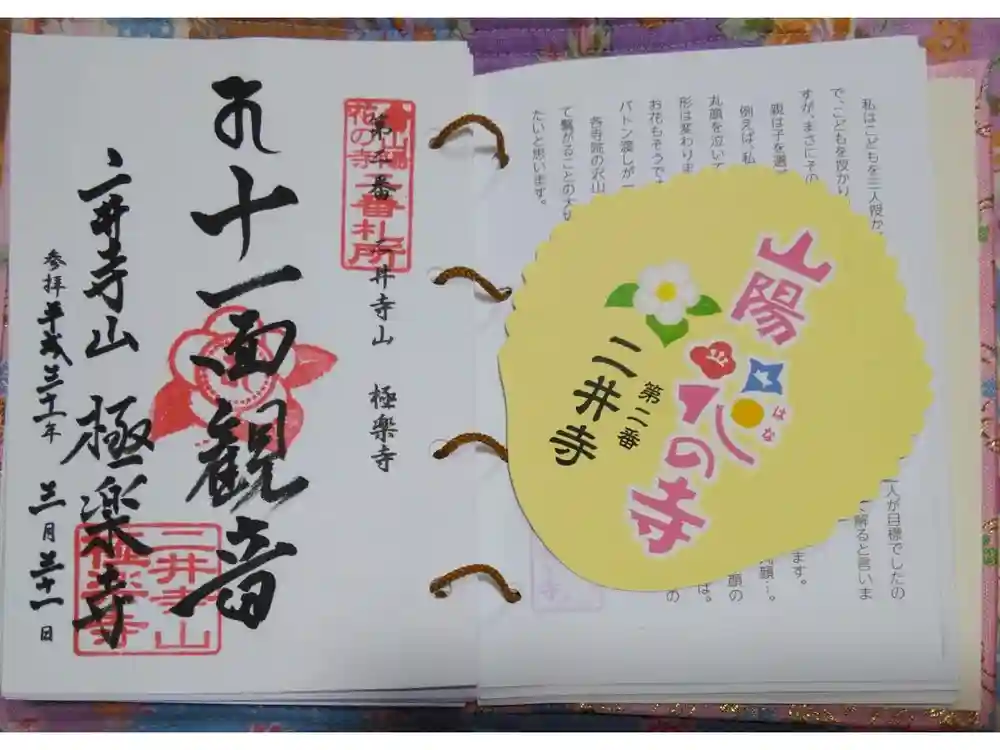 私はこどもを三人授か
人が目標でしたの
で、こどもを授かり
解ると言いま
すが、まさにその
ます。
親は子を選
例えば、私
顔…。
丸顔を泣いて
顔の
形は変わりま
は。
お花もそうで
の
バトン渡しが
各寺院の沢山
て繋がることの大
たいと思います。
山陽
花の寺
はな
第二番
二井寺
山陽
花の寺
二番札所
第二番 二井寺山 極楽寺
十一面観音
二井寺山 極楽寺
二井寺山
極楽寺
参拝 平成三十一年 三月三十一日